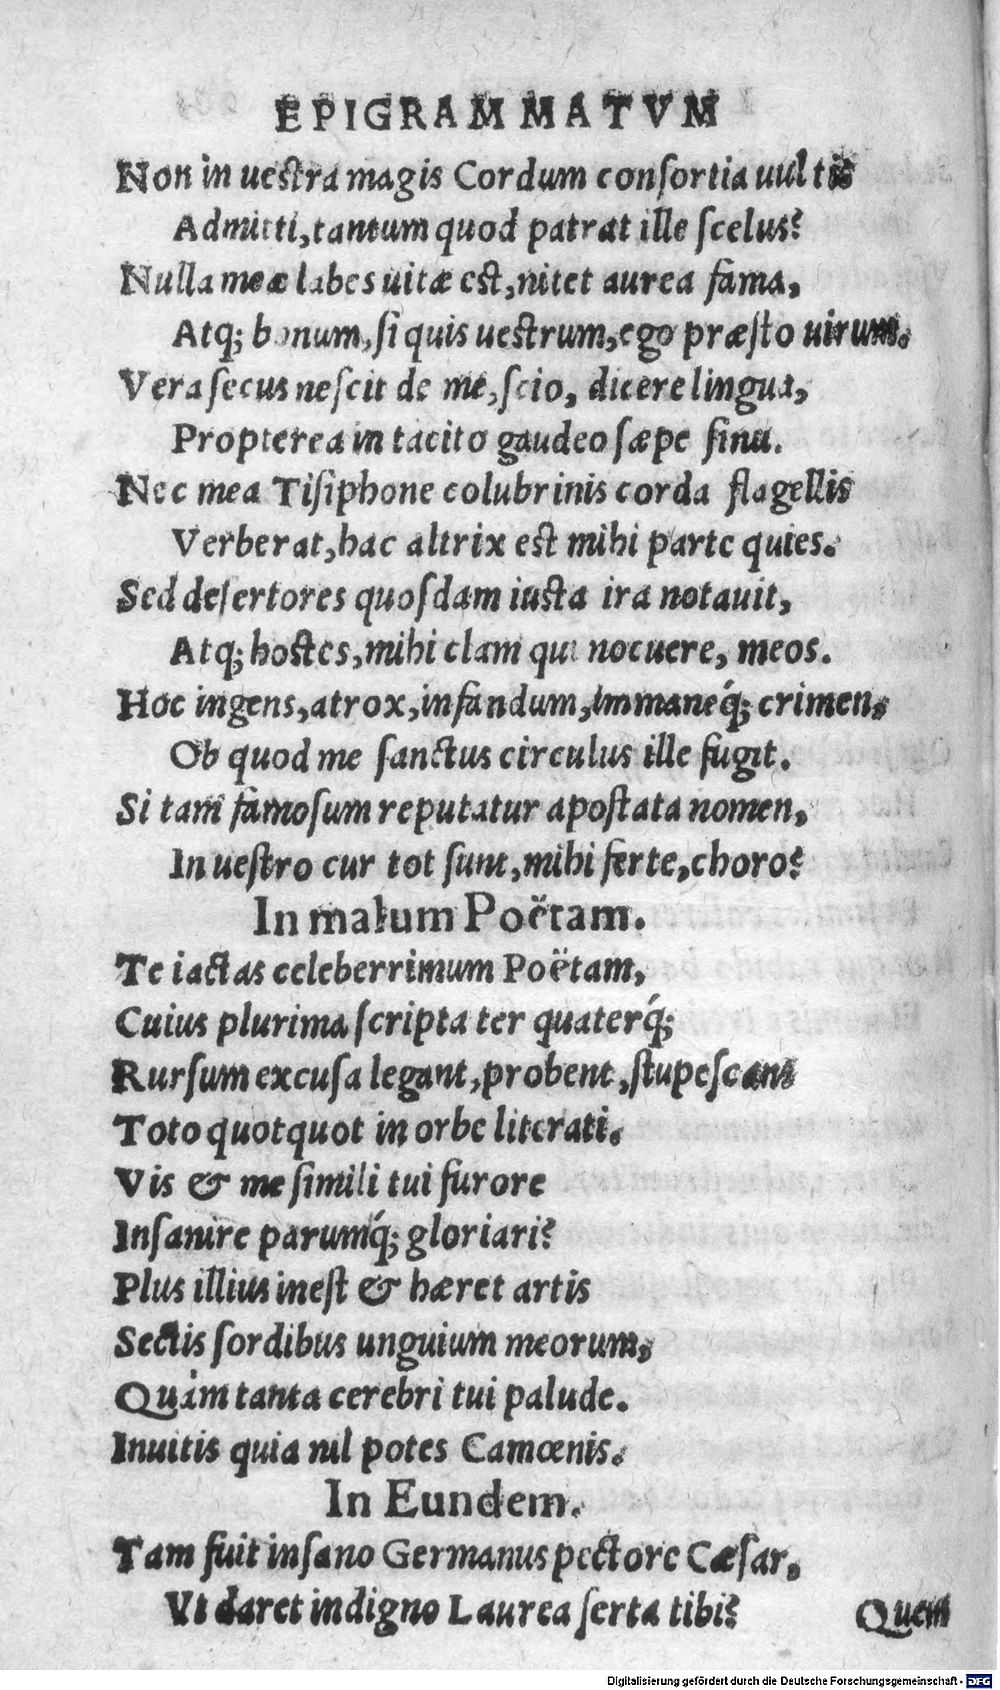 EPIGRAMMATVM
Non in ueſtra magis Cordum conſortia uultis
Admitti, tantum quod patrat ille ſcelus?
Nulla meæ labes uitæ eſt, nitet aurea fama,
Atq; bonum, ſi quis ueſtrum, ego præſto uirum.
Vera ſecus neſcit de me, ſcio, dicere lingua,
Propterea in tacito gaudeo ſæpe ſinu.
Nec mea Tiſiphone colubrinis corda flagellis
Verberat, hac altrix eſt mihi parte quies.
Sed deſertores quoſdam iuſta ira notauit,
Atq; hoſtes, mihi clam qui nocuere, meos.
Hoc ingens, atrox, infandum, immaneq́; crimen,
Ob quod me ſanctus circulus ille fugit.
Si tam famoſum reputatur apoſtata nomen,
In ueſtro cur tot ſunt, mihi ferte, choro?
In malum Poëtam.
Te iactas celeberrimum Poëtam,
Cuius plurima ſcripta ter quaterq́;
Rurſum excuſa legant, probent, ſtupeſcant
Toto quotquot in orbe literati.
Vis & me ſimili tui furore
Inſanire parumq́; gloriari?
Plus illius ineſt & hæret artis
Sectis ſordibus unguium meorum,
Quàm tanta cerebri tui palude.
Inuitis quia nil potes Camœnis.
In Eundem.
Tam fuit inſano Germanus pectore Cæſar,
Vt daret indigno Laurea ſerta tibi?
Quem
Digitalisierung gefördert durch die Deutsche Forschungsgemeinschaft - DFG